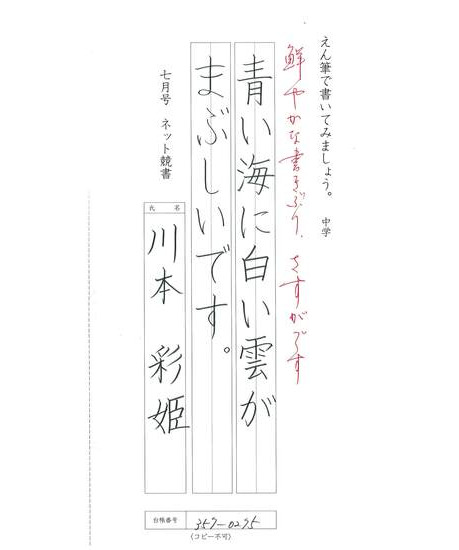 えん筆で書いてみましょう。 中学
鮮やかな書きぶり、さすがです
青い海に白い雲が
まぶしいです。
七月号 ネット競書
氏名
川本 彩姫
台帳番号 357-0295
(コピー不可)